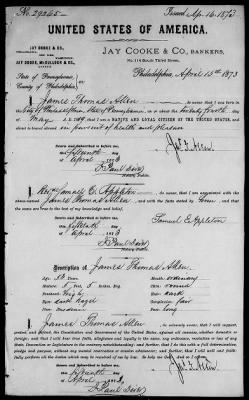 No. 29265
Issued Apr. 16. 1873
UNITED STATES OF AMERICA.
JAY COOKE & CO.,
JAY COOKE, McCULLOCH & CO.,
JAY COOKE & CO., BANKERS,
No. 114 South Third Street,
Philadelphia, April 15th 1873
State of Pennsylvania,
County of Philadelphia
I, James Thomas Allen
City of Philadelphia State of Pennsylvania, on or about the twenty fourth day of
May A.D. a NATIVE AND LOYAL CITIZEN OF THE UNITED STATES, and about
to travel abroad in pursuit of health and pleasure
Sworn and Subscribed to before me,
this fifteenth day of
April 1873
Jas. T. Allen
I, Samuel E. Appleton, do swear that I am acquainted with the above-
named James Thomas Allen, and with the facts stated by him, and that the
above are true to the best of my knowledge and belief.
Sworn and Subscribed to before me,
this fifteenth day of
April 1873
Samuel E. Appleton
Description of James Thomas Allen
Age,
Stature, 5 Feet, 5 Inches, Eng.
Forehead, high
Eyes, dark hazel
Nose,
Mouth, medium
Chin, round
Hair, dark
Complexion, fair
Face, long
I, James Thomas Allen, do solemnly swear that I will support,
protect, and defend, the Constitution and Government of the United States, against all enemies, whether domestic or
foreign; and that I will bear true faith, allegiance and loyalty to the same, any ordinance, resolution or law of any
State, Convention or Legislature to the contrary notwithstanding; and further, that I do this with a full determination,
pledge and purpose, without any mental reservation or evasion whatsoever; and further, that I will well and faith-
fully perform all the duties which may be required of me by law. So help me God.
Sworn and Subscribed to before me,
this fifteenth day of
April 1873
Jas. T. Allen